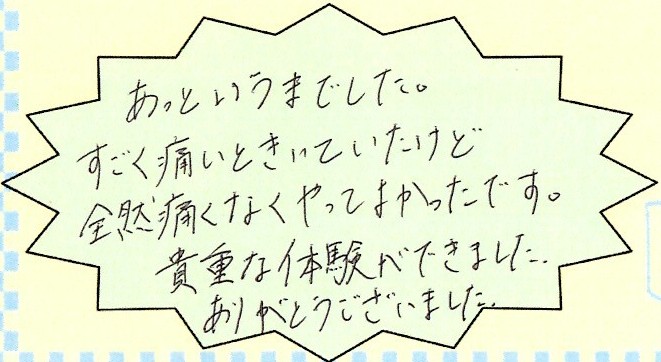 あっというまでした。
すごく痛いときいていたけど
全然痛くなくやってよかったです。
貴重な体験ができました.
ありがとうございました.